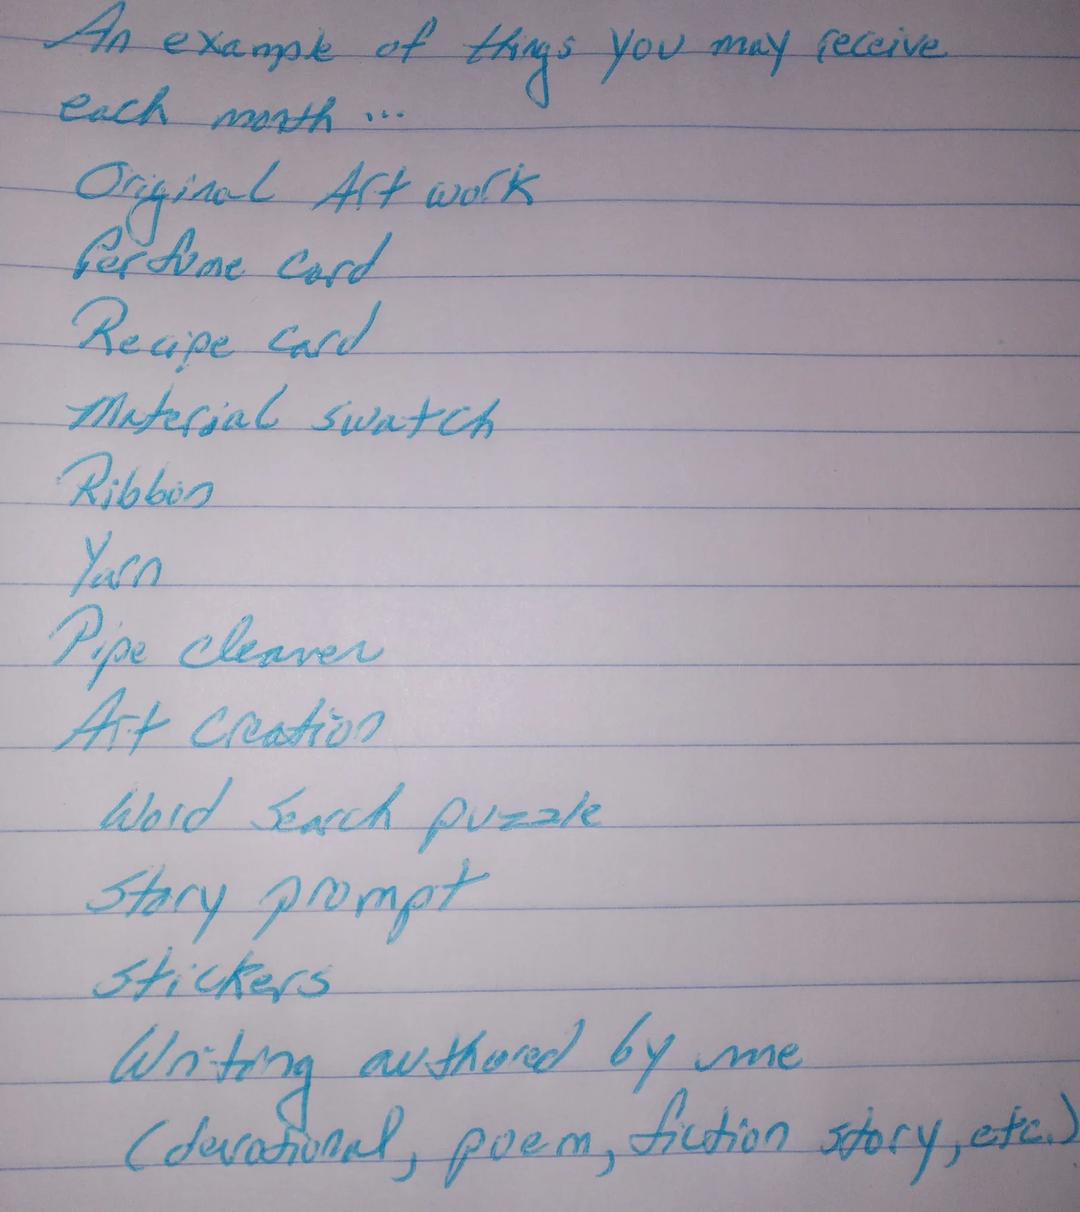 An example of things you may receive
each month ...
Original Art work
Perfume card
Recipe card
Material swatch
Ribbon
Yarn
Pipe cleaner
Art creation
Word Search puzzle
Story prompt
Stickers
Writing authored by me
(devotional, poem, fiction story, etc.)